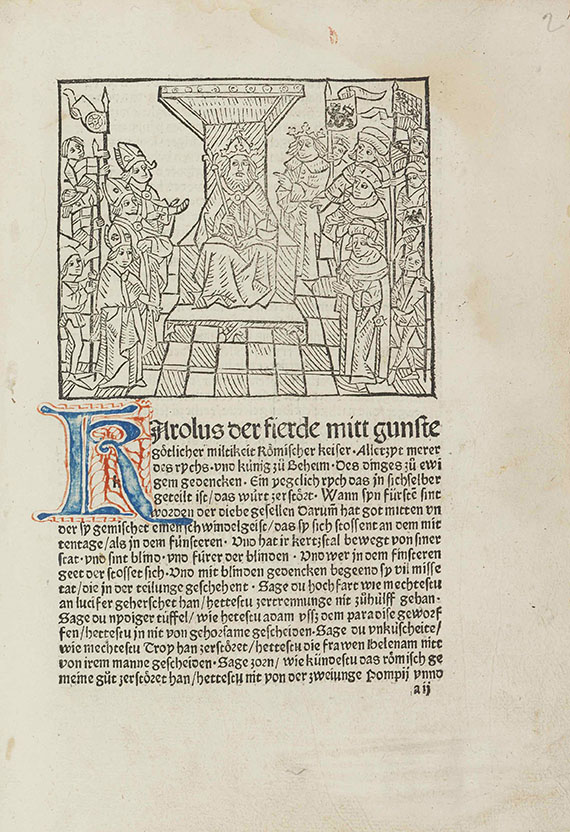 2
KArolus der fierde mitt gunste
götlicher miltikeit Römischer keiser · Allerzyt merer
des rychs · vnd künig zů Beheim · Des dinges zů ewi
gem gedencken · Ein yegclich rych das in sichselber
geteilt ist / das würt zerstört · Wann syn fürstē sint
worden der diebe gesellen Darum̄ hat got mitten vn
der sy gemischet einen schwindelgeist / das sy sich stossent an dem mit
tentage / als in dem fünsteren · Vnd hat ir kertzstal bewegt von siner
stat · vnd sint blind · vnd fürer der blinden · Vnd wer in dem finsteren
geet der stosset sich · Vnd mit blinden gedencken begeend sy vil misse
tat / die in der teilunge geschehent · Sage du hochfart wie mechtestu
an lucifer geherschet han / hettestu zertrennunge nit zů hülff gehan ·
Sage du nydiger tüffel / wie hetestu adam vssz dem paradise geworf
fen / hettestu jn nit von gehorsame gescheiden · Sage du vnküscheite /
wie mechtestu Troy han zerstöret / hettestu die frawen Helenam nitt
von irem manne gescheiden · Sage zorn / wie kündestu das römisch ge
meine gůt zerstöret han / hettestu nit von der zweiunge Pompij vnnd
a ij